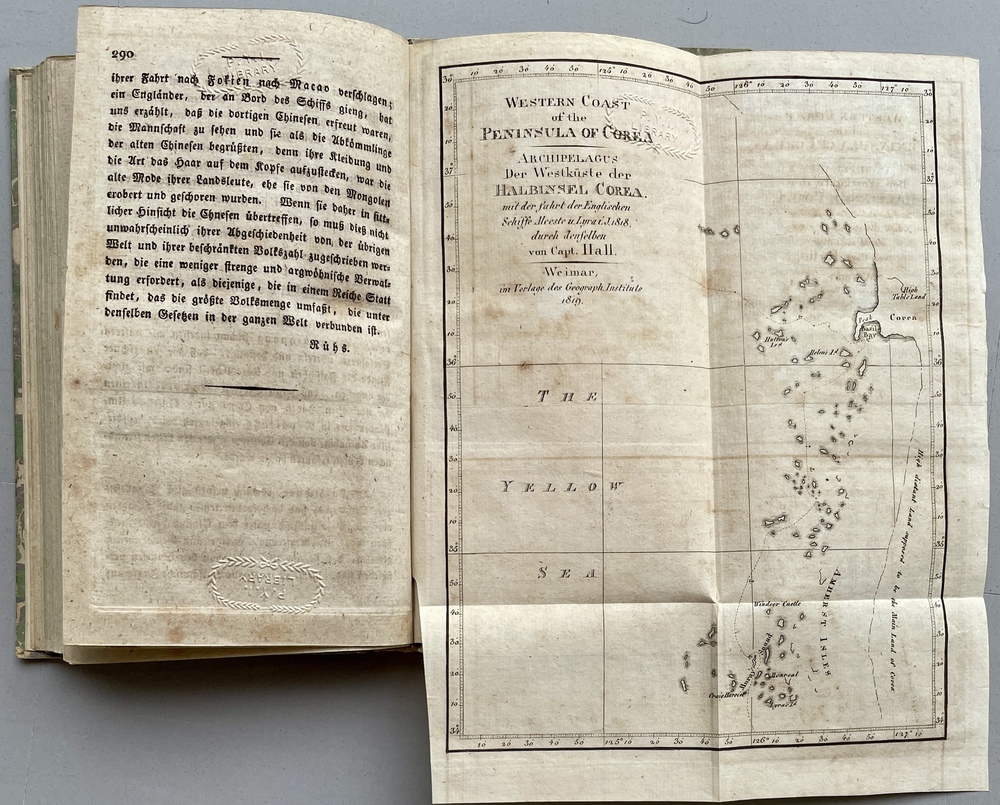 290
ihrer Fahrt nach Fokien nach Macao verschlagen;
ein Engländer, der an Bord des Schiffs gieng, hat
uns erzählt, daß die dortigen Chinesen erfreut waren,
die Mannschaft zu sehen und sie als die Abkömmlinge
der alten Chinesen begrüßten, denn ihre Kleidung und
die Art das Haar auf dem Kopfe aufzustecken, war die
alte Mode ihrer Landsleute, ehe sie von den Mongolen
erobert und geschoren wurden. Wenn sie daher in sitt-
licher Hinsicht die Chnesen übertreffen, so muß dieß nicht
unwahrscheinlich ihrer Abgeschiedenheit von der übrigen
Welt und ihrer beschränkten Volkszahl zugeschrieben wer-
den, die eine weniger strenge und argwöhnische Verwal-
tung erfordert, als diejenige, die in einem Reiche Statt
findet, das die größte Volksmenge umfaßt, die unter
denselben Gesetzen in der ganzen Welt verbunden ist.
Rühs.
LIBRARY
P. Y. LIBRARY
WESTERN COAST
of the
PENINSULA OF COREA
ARCHIPELAGUS
Der Westküste der
HALBINSEL COREA.
mit der fahrt der Englischen
Schiffe Alceste u. Lyra i. J. 1818.
durch denselben
von Capt. Hall.
Weimar,
im Verlage des Geograph. Instituts
1819.
THE
YELLOW
SEA
High
Table Land
Corea
Basil
Bay
Hutton's
Isd
Helens Id
High distant Land supposed to be the Main Land of Corea
AMHERST ISLES
Windsor Castle
Murray Sound
Montreal
Craig Harriet
Lyras Id
10 20 30 40 50 125° 10 20 30 40 50 126° 10 20 30 40 50 127° 10
36°
35°
34
10 20 30 40 50 125° 10 20 30 40 50 126° 10 20 30 40 50 127° 10